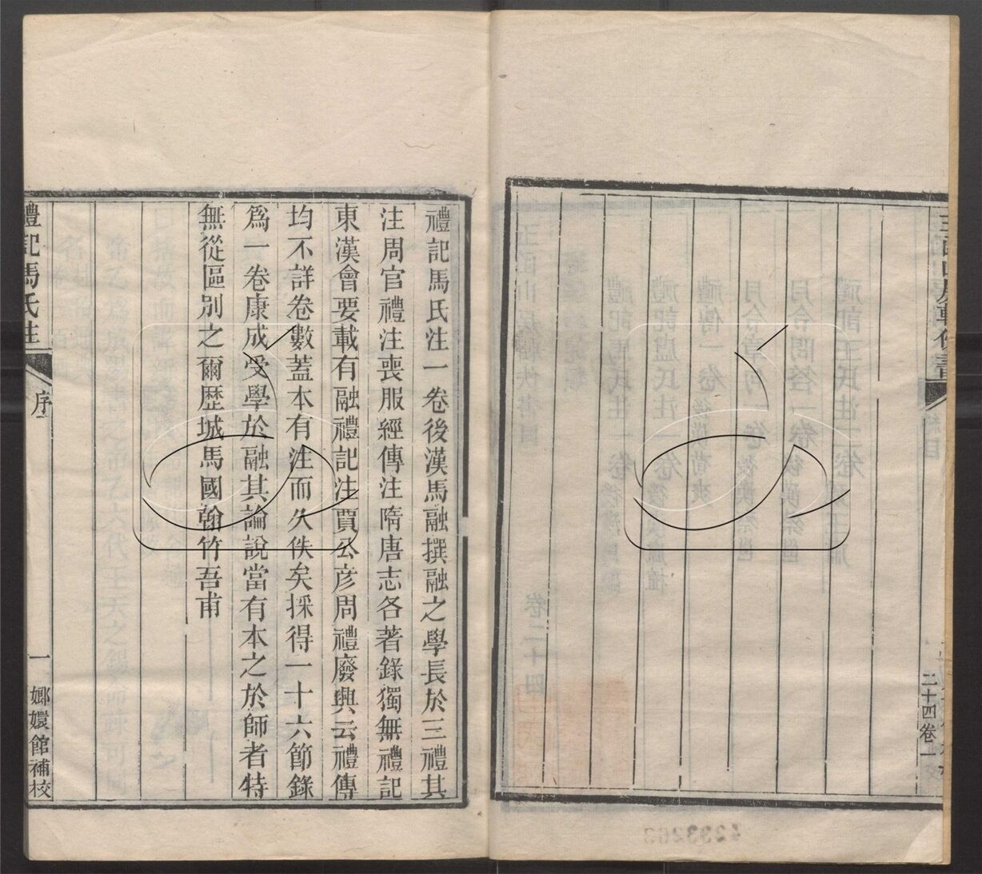 禮記馬氏注一卷後漢馬融撰融之學長於三禮其
注周官禮注喪服經傳注隋唐志各著錄獨無禮記
東漢會要載有融禮記注賈公彥周禮廢興云禮傳
均不詳卷數蓋本有注而久佚矣採得一十六節錄
爲一卷康成受學於融其論說當有本之於師者特
無從區別之爾歷城馬國翰竹吾甫
禮記馬氏注
序
一
嫏嬛館補校
二十四卷一